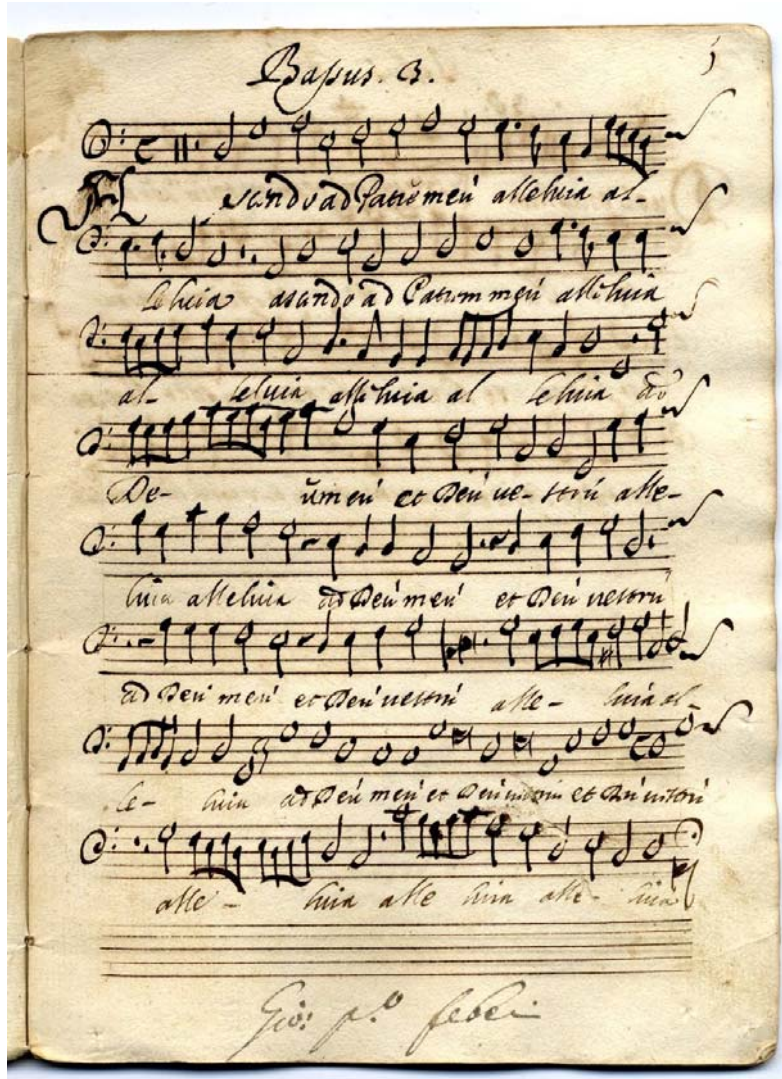 Bassus. 3.
Ascendo ad Patrē meū alleluia al-
leluia ascendo ad Patrem meū alleluia
al- leluia alleluia al leluia ad
De- ūmeū et Deū ve- strū alle-
luia alleluia ad Deū meū et Deū vestrū
ad Deū meū et Deū vestrū alle- luia al-
le- luia ad Deū meū et Deū et Deū vestrū
alle- luia alle luia alle- luia
Gio: p.º